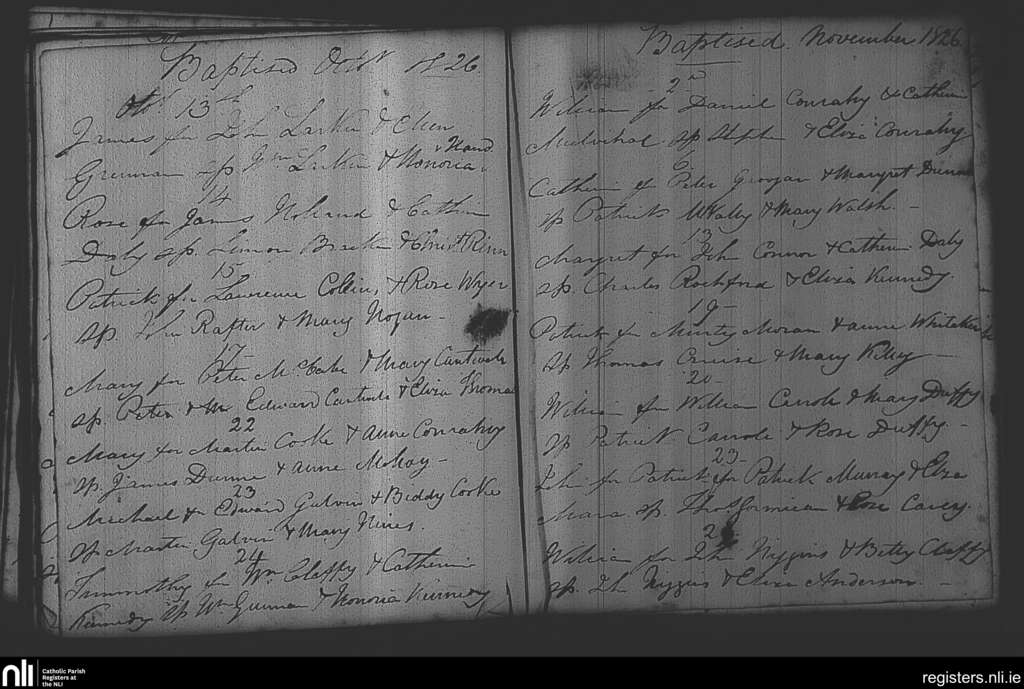 Baptised Octbr 1826
Octbr 13th
James for Jhn Larkin & Ellen
Grennan sp Jms Larkin & Honoria
14
Rose for James Noland & Cathrin
Daly sp. Simon &
15
Patrick for Laurence Collins & Rose Wyer
sp. Jhn Rafter & Mary Nojan -
17-
Mary for Peter McCabe & Mary Cantwell
sp. Peter & Edward Cantwell & Eliza Thomas
22
Mary for Martin Cooke & Anne Conrahy
sp. James Dunne & Anne McKoy -
23
Michael for Edward Galvin & Biddy Cooke
sp Martin Galvin & Mary Hines.
24
Timmothy for Wm Claffy & Catherin
Kennedy sp Wm & Honoria Kennedy
Baptised November 1826
2nd
William for Daniel Conrahy & Catherin
Mulvihal sp Stephn & Eliza Conrahy
6
Catherin Peter Geogan & Margret
sp Patrick McNally & Mary Walsh. -
13
Margret for Jhn Connor & Catherin Daly
sp. Charles Rochford & Eliza Kennedy.
19-
Patrick for Minty Moran & Anne
sp Thomas Cruise & Mary Kilty -
20-
William for William Carroll & Mary Duffy
sp Patrick Carroll & Rose Duffy. -
23-
Jhn for Patrick for Patrick Murray & Eliza
Mara sp. & Rose Carey.
2
William for Jhn Higgins & Betty Claffy
sp. Jhn Higgins & Eliza Anderson. -
nli
Catholic Parish
Registers at
the NLI
registers.nli.ie